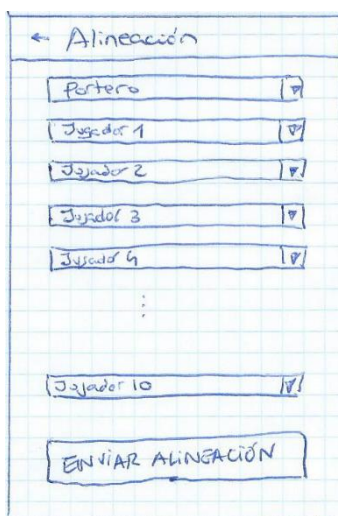 ← Alineación
Portero
Jugador 1
Jugador 2
Jugador 3
Jugador 4
⋮
Jugador 10
ENVIAR ALINEACIÓN